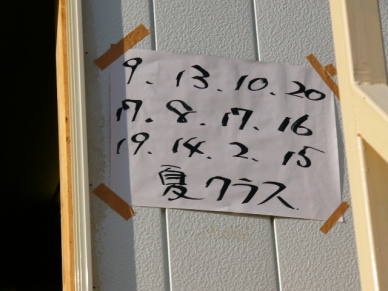 9. 13. 10. 20
17. 8. 17. 16
19. 14. 2. 15
夏クラス